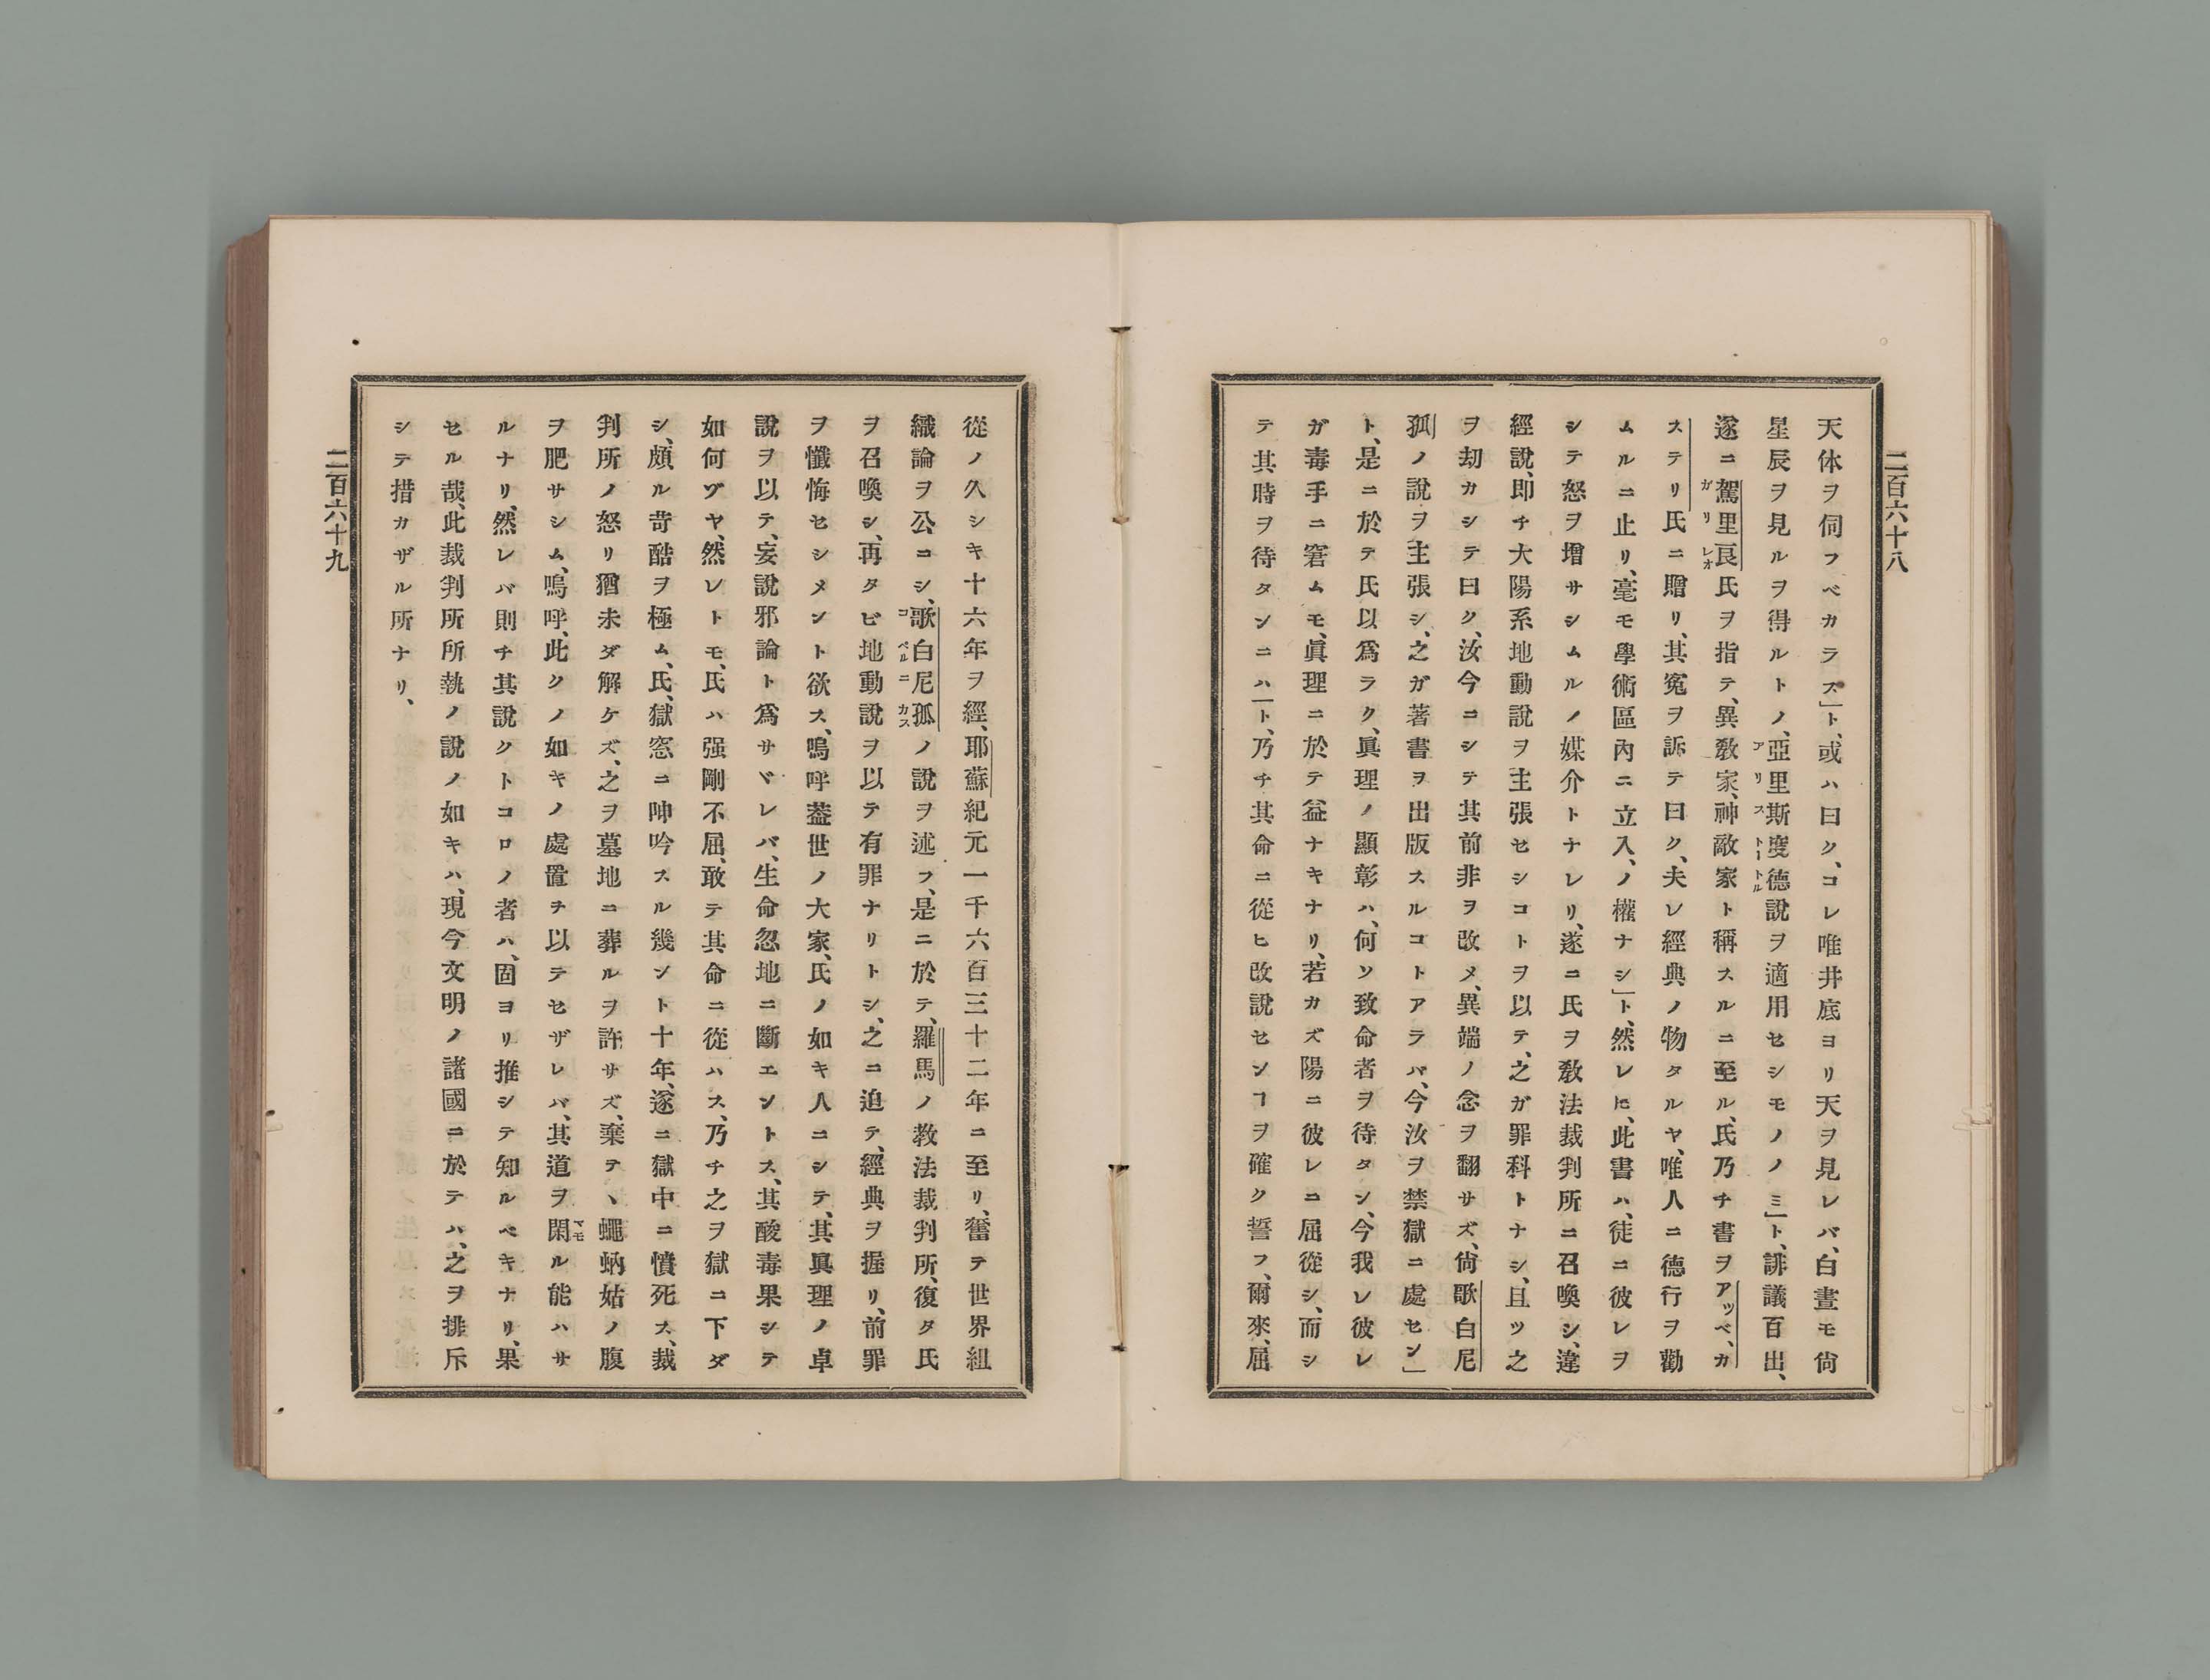 二百六十八
天体ヲ伺フベカラズ」ト、或ハ曰ク、コレ唯井底ヨリ天ヲ見レバ、白晝モ尙
星辰ヲ見ルヲ得ルトノ、亞里斯度德說ヲ適用セシモノノミ」ト、誹議百出、
遂ニ駕里良氏ヲ指テ、異敎家、神敵家ト稱スルニ至ル、氏乃チ書ヲアッベ、カ
ステリ氏ニ贈リ、其寃ヲ訴テ曰ク、夫レ經典ノ物タルヤ、唯人ニ德行ヲ勸
ムルニ止リ、毫モ學術區內ニ立入ノ權ナシ」ト、然レ𪜈、此書ハ、徒ニ彼レヲ
シテ怒ヲ增サシムルノ媒介トナレリ、遂ニ氏ヲ敎法裁判所ニ召喚シ、違
經說、即チ大陽系地動說ヲ主張セシコトヲ以テ、之ガ罪科トナシ、且ツ之
ヲ刧カシテ曰ク、汝今ニシテ其前非ヲ改メ、異端ノ念ヲ翻サズ、尙歌白尼
孤ノ說ヲ主張シ、之ガ著書ヲ出版スルコトアラバ、今汝ヲ禁獄ニ處セン」
ト、是ニ於テ氏以爲ラク、眞理ノ顯彰ハ、何ソ致命者ヲ待タン、今我レ彼レ
ガ毒手ニ窘ムモ、眞理ニ於テ益ナキナリ、若カズ陽ニ彼レニ屈從シ、而シ
テ其時ヲ待タンニハ」ト、乃チ其命ニ從ヒ改說センヿヲ確ク誓フ、爾來、屈
二百六十九
從ノ久シキ十六年ヲ經、耶蘇紀元一千六百三十二年ニ至リ、奮テ世界組
織論ヲ公ニシ、歌白尼孤ノ說ヲ述フ、是ニ於テ、羅馬ノ敎法裁判所、復タ氏
ヲ召喚シ、再タビ地動說ヲ以テ有罪ナリトシ、之ニ迫テ、經典ヲ握リ、前罪
ヲ懺悔セシメント欲ス、嗚呼葢世ノ大家、氏ノ如キ人ニシテ、其眞理ノ卓
說ヲ以テ、妄說邪論ト爲サヾレバ、生命忽地ニ斷エントス、其酸毒果シテ
如何ヅヤ、然レトモ、氏ハ强剛不屈、敢テ其命ニ從ハス、乃チ之ヲ獄ニ下ダ
シ、頗ル苛酷ヲ極ム、氏、獄窓ニ呻吟スル幾ント十年、遂ニ獄中ニ憤死ス、裁
判所ノ怒リ猶未ダ解ケズ、之ヲ墓地ニ葬ルヲ許サズ、棄テヽ蠅蚋姑ノ腹
ヲ肥サシム、嗚呼、此クノ如キノ處置ヲ以テセザレバ、其道ヲ閑ル能ハサ
ルナリ、然レバ則チ其說クトコロノ者ハ、固ヨリ推シテ知ルベキナリ、果
セル哉、此裁判所所執ノ說ノ如キハ、現今文明ノ諸國ニ於テハ、之ヲ排斥
シテ措カザル所ナリ、